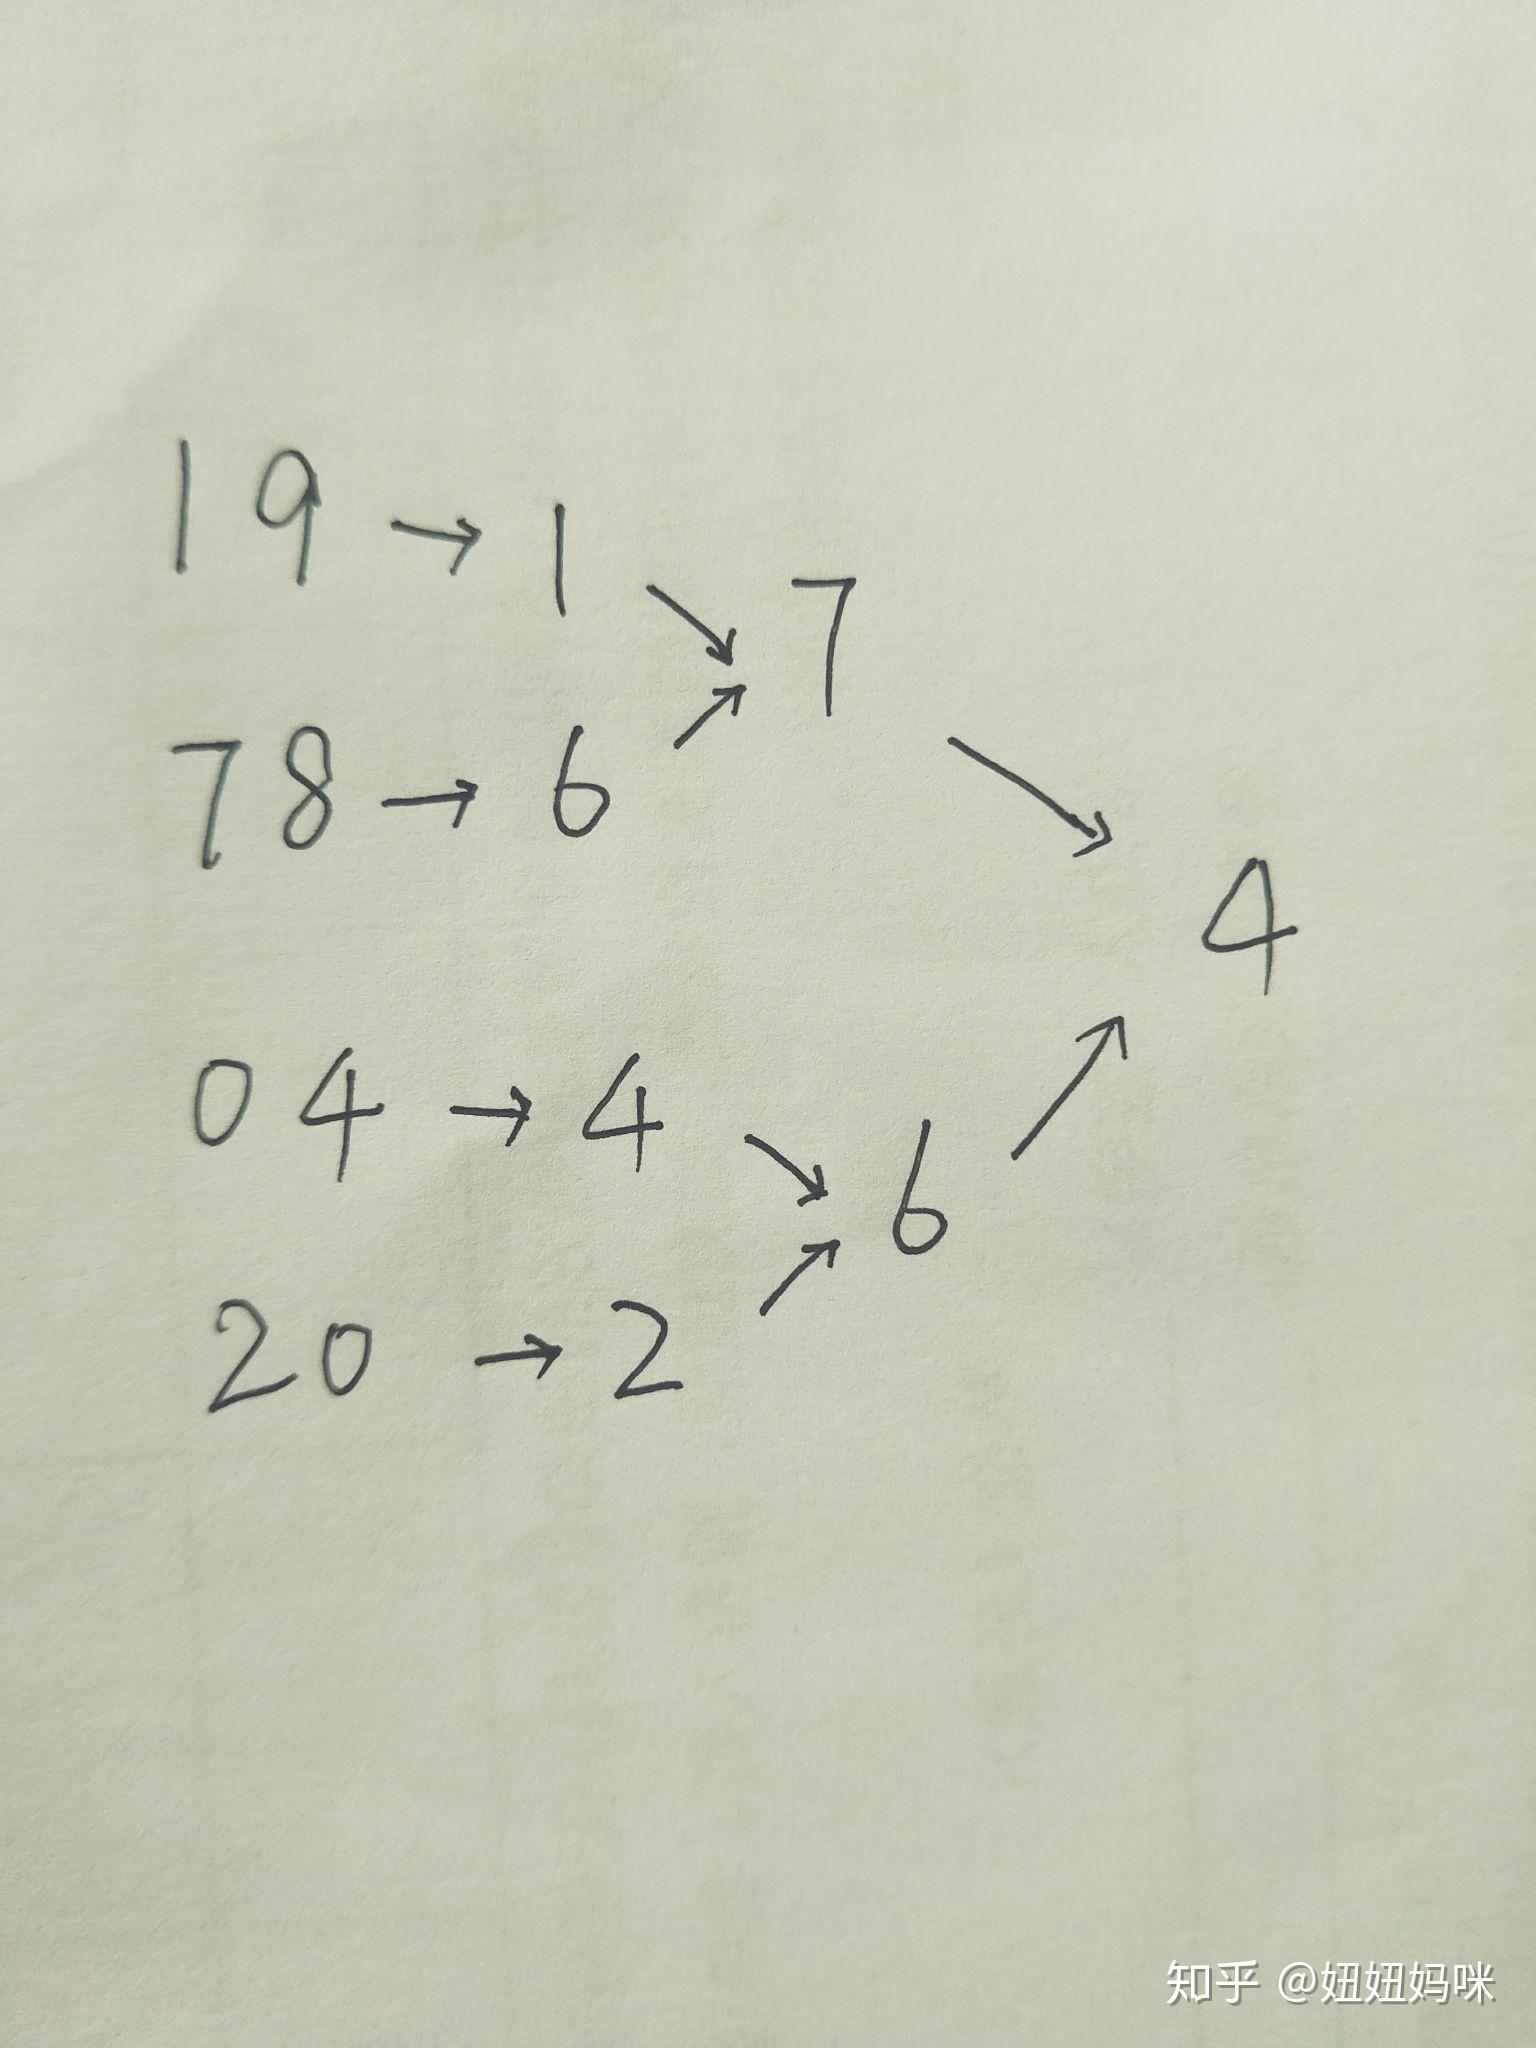 19 → 1
7
78 → 6
4
04 → 4
6
20 → 2
知乎 @妞妞妈咪